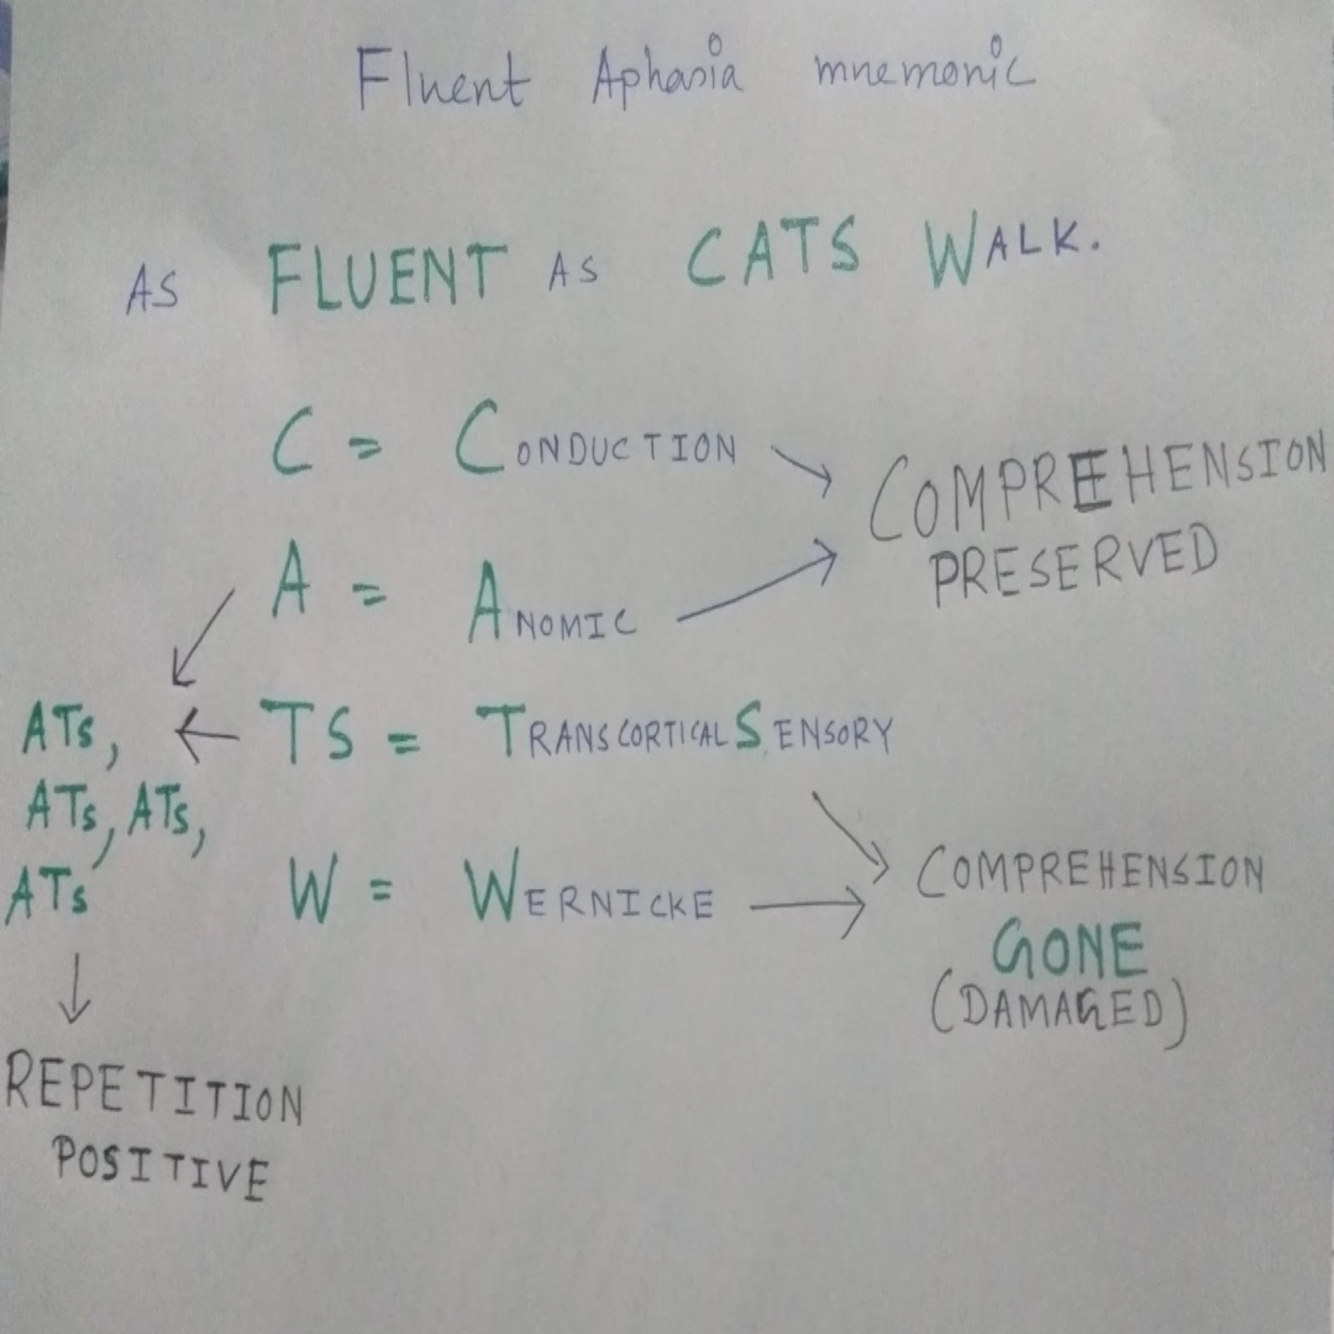 Fluent Aphasia mnemonic
AS FLUENT AS CATS WALK.
C = CONDUCTION
COMPREHENSION
PRESERVED
A = ANOMIC
ATs,
TS = TRANSCORTICAL SENSORY
ATs, ATs,
ATs
W = WERNICKE
COMPREHENSION
GONE
(DAMAGED)
REPETITION
POSITIVE